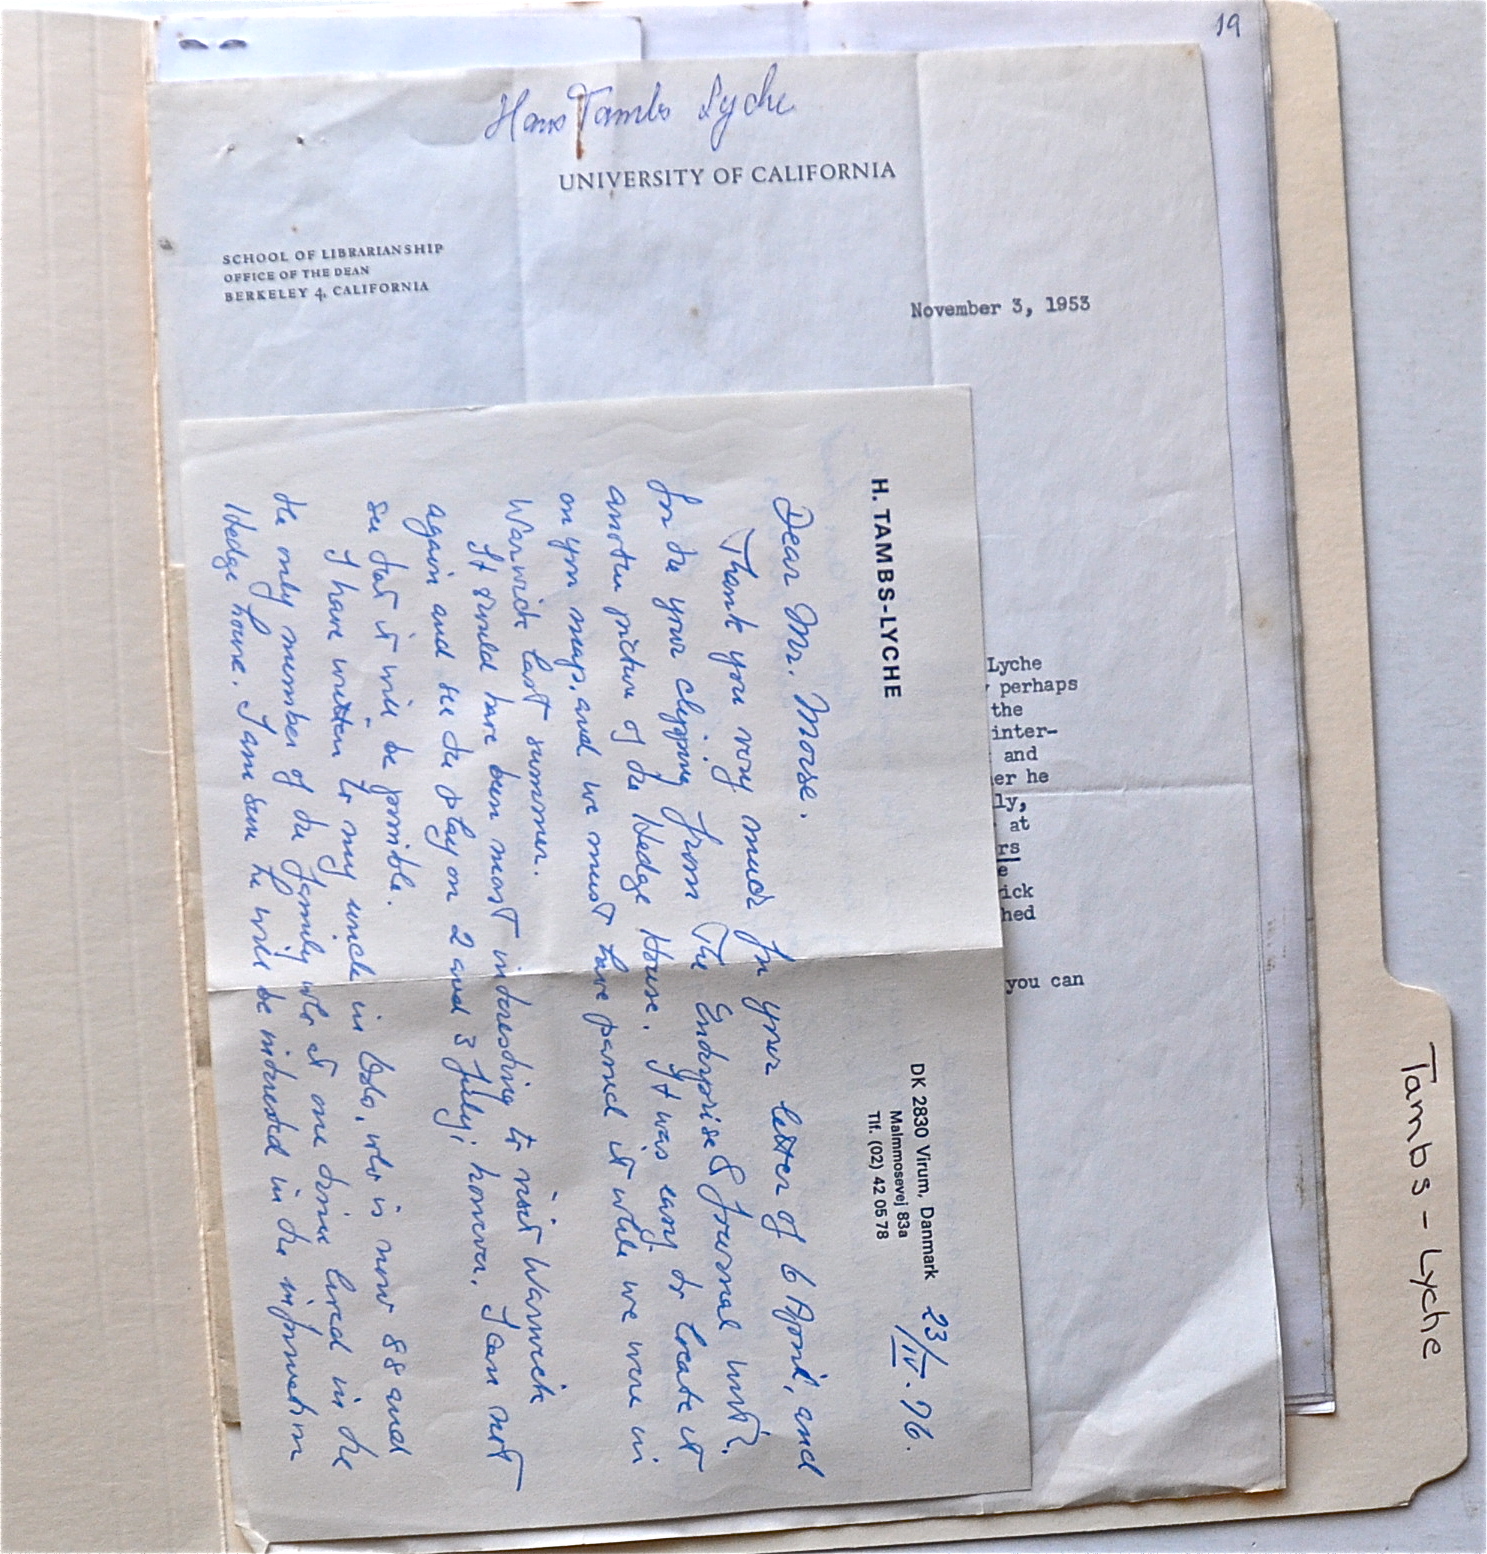 19
Hans Tambs Lyche
UNIVERSITY OF CALIFORNIA
SCHOOL OF LIBRARIANSHIP
OFFICE OF THE DEAN
BERKELEY 4, CALIFORNIA
November 3, 1953
Lyche
perhaps
the
inter-
and
er he
ly,
at
rs
e
ick
hed
you can
H. TAMBS-LYCHE
DK 2830 Virum, Danmark
Malmmosevej 83a
Tlf. (02) 42 05 78
23/IV. 76.
Dear Mr. Morse.
Thank you very much for your letter of 6 April, and
for the your clipping from The Enterprise & Journal
another picture of the Hedge House. It was easy to locate it
on you maps, and we must have passed it while we were in
Warwick last summer.
It would have been most interesting to visit Warwick
again and see the play on 2 and 3 July; however, I can not
see that it will be possible.
I have written to my uncle in Oslo, who is now 88 and
the only member of the family who at one time lived in the
Hedge house. I am sure he will be interested in the information
Tambs-Lyche